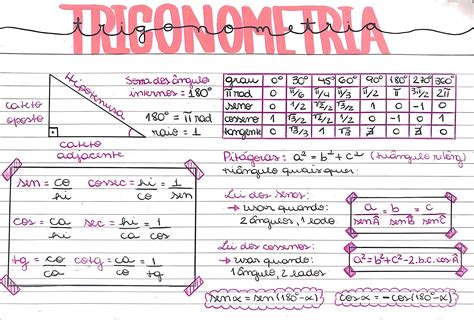 TRIGONOMETRIA
trigonometria
Hipotenusa
cateto oposto
cateto adjacente
Soma dos ângulos
internos = 180°
180° = π rad
raio = 1
grau 0° 30° 45° 60° 90° 180° 270° 360°
π rad 0 π/6 π/4 π/3 π/2 π 3π/2 2π
seno 0 1/2 √2/2 √3/2 1 0 -1 0
cosseno 1 √3/2 √2/2 1/2 0 -1 0 1
tangente 0 √3/3 1 √3 ∄ 0 ∄ 0
Pitágoras: a² = b² + c² (triângulo retâng)
triângulo quaisquer:
sen = co/hi cossec = hi/co = 1/sen
cos = ca/hi sec = hi/ca = 1/cos
tg = co/ca cotg = ca/co = 1/tg
Lei dos senos:
→ usar quando:
2 ângulos, 1 lado
a/sen  = b/sen B̂ = c/sen Ĉ
Lei dos cossenos:
→ usar quando:
1 ângulo, 2 lados
a² = b² + c² - 2.b.c.cos Â
sen α = sen (180° - α)
cos α = - cos (180° - α)